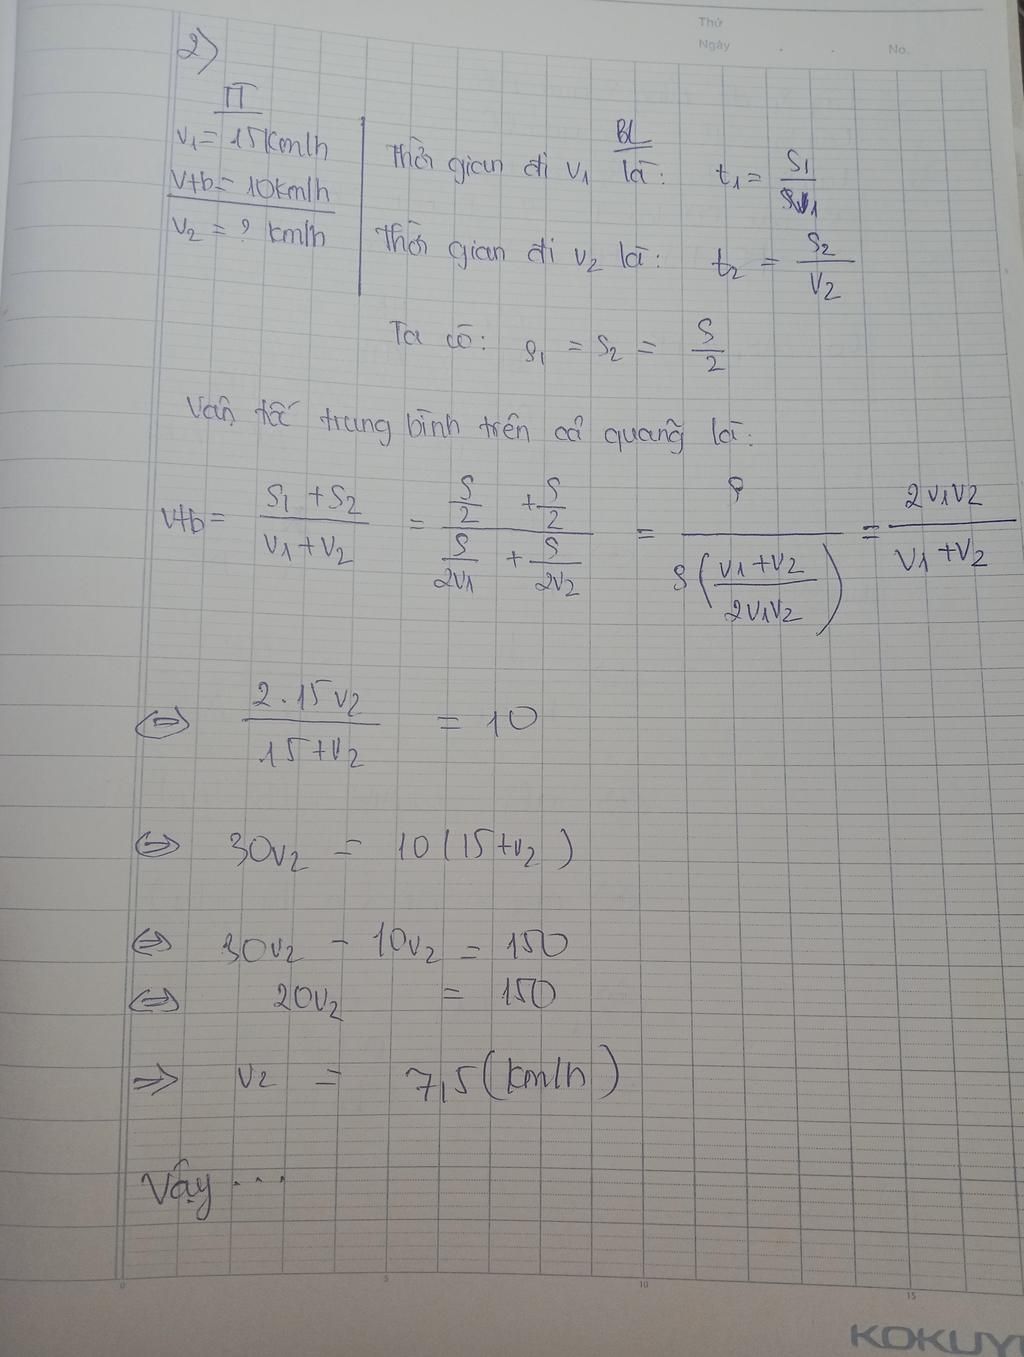 Thứ
Ngày . . No.
2)
TT
v₁ = 15km/h
vtb = 10km/h
v₂ = ? km/h
BL
Thời gian đi v₁ là: t₁ = S₁/v₁
Thời gian đi v₂ là: t₂ = S₂/v₂
Ta có: S₁ = S₂ = S/2
Vận tốc trung bình trên cả quãng là:
vtb = (S₁ + S₂)/(v₁ + v₂) = (S/2 + S/2)/(S/2v₁ + S/2v₂) = S/(S((v₁ + v₂)/2v₁v₂)) = 2v₁v₂/(v₁ + v₂)
⇔ 2.15v₂/(15 + v₂) = 10
⇔ 30v₂ = 10(15 + v₂)
⇔ 30v₂ - 10v₂ = 150
⇔ 20v₂ = 150
⇒ v₂ = 7,5 (km/h)
Vậy ...
0 5 10 15
KOKUY